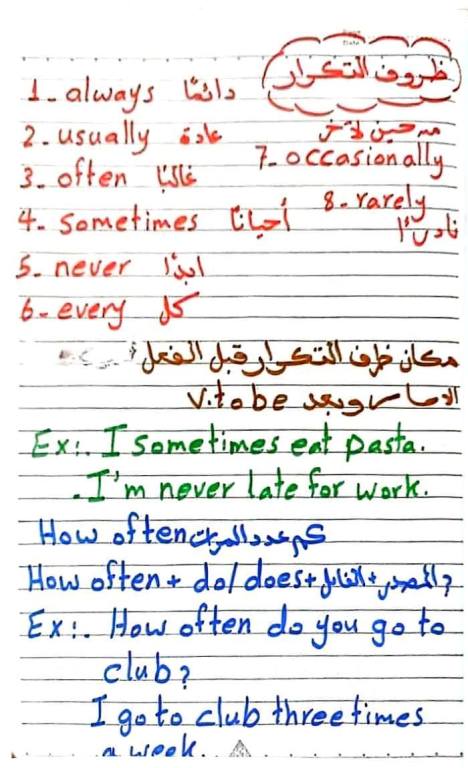 ظروف التكرار
1- always دائمًا
2- usually عادة
3- often غالبًا
4- Sometimes أحيانًا
5- never ابدًا
6- every كل
من حين لآخر
7- occasionally
8- rarely
نادرًا
مكان ظرف التكرار قبل الفعل
الاساسى وبعد v.to be
Ex:. I sometimes eat pasta.
. I'm never late for work.
How often كم عدد المرات
How often + do/does + الفاعل + المصدر ?
Ex:. How often do you go to
club?
I go to club three times
a week.